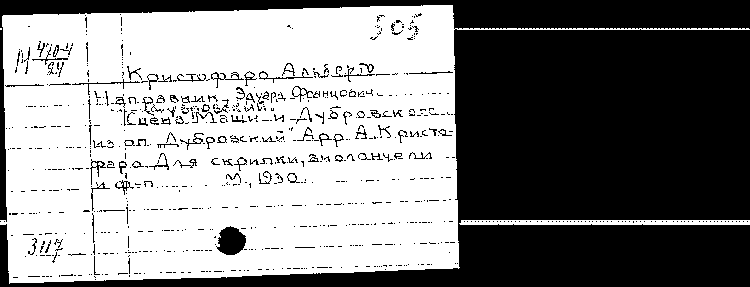 505
М 470-4
24
Кристофаро, Альберто
Направник, Эдуард Францович.
Дубровский.
Сцена Маши и Дубровского
из оп. „Дубровский" Арр. А. Кристо-
фаро. Для скрипки, виолончели
и ф-п. М., 1930
3117